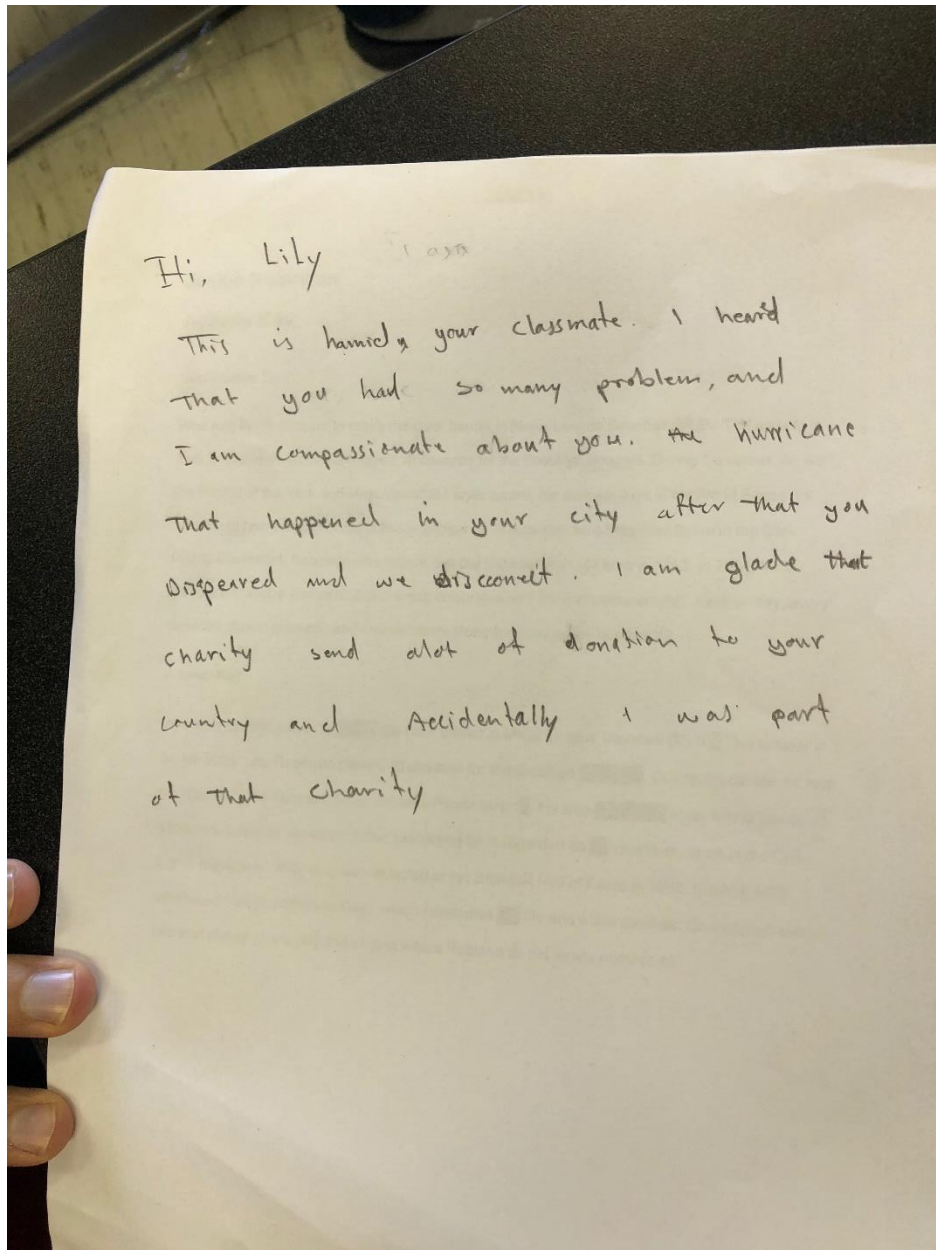 Hi, Lily
This is hamid, your classmate. I heard
That you had so many problem, and
I am compassionate about you. the hurricane
That happened in your city after that you
Dispeared and we disconnect. I am glade that
charity send alot of donation to your
country and Accidentally I was part
of that charity